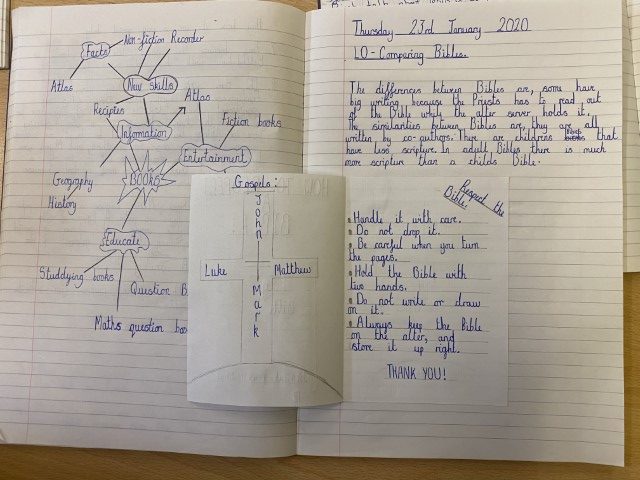 Non-fiction Recorder
Facts
Atlas
New skills
Recipies
Atlas
Information
Fiction books
Entertainment
Geography
BOOKs
History
Educate
Studdying books
Question B
Maths question boo
Gospels:
John
Luke
Matthew
Mark
Thursday 23rd January 2020
LO - Comparing Bibles.
The differences between Bibles are, some have
big writing because the Priests has to read out
of the Bible while the alter server holds it.
The similarities between Bibles are, they are all
written by co-authors. There are childrens that
have less scripture. In adult Bibles there is much
more scripture than a childs Bible.
Respect the
Bible.
• Handle it with care.
• Do not drop it.
• Be careful when you turn
the pages.
• Hold the Bible with
two hands.
• Do not write or draw
on it.
• Always keep the Bible
on the alter, and
store it up right.
THANK YOU!